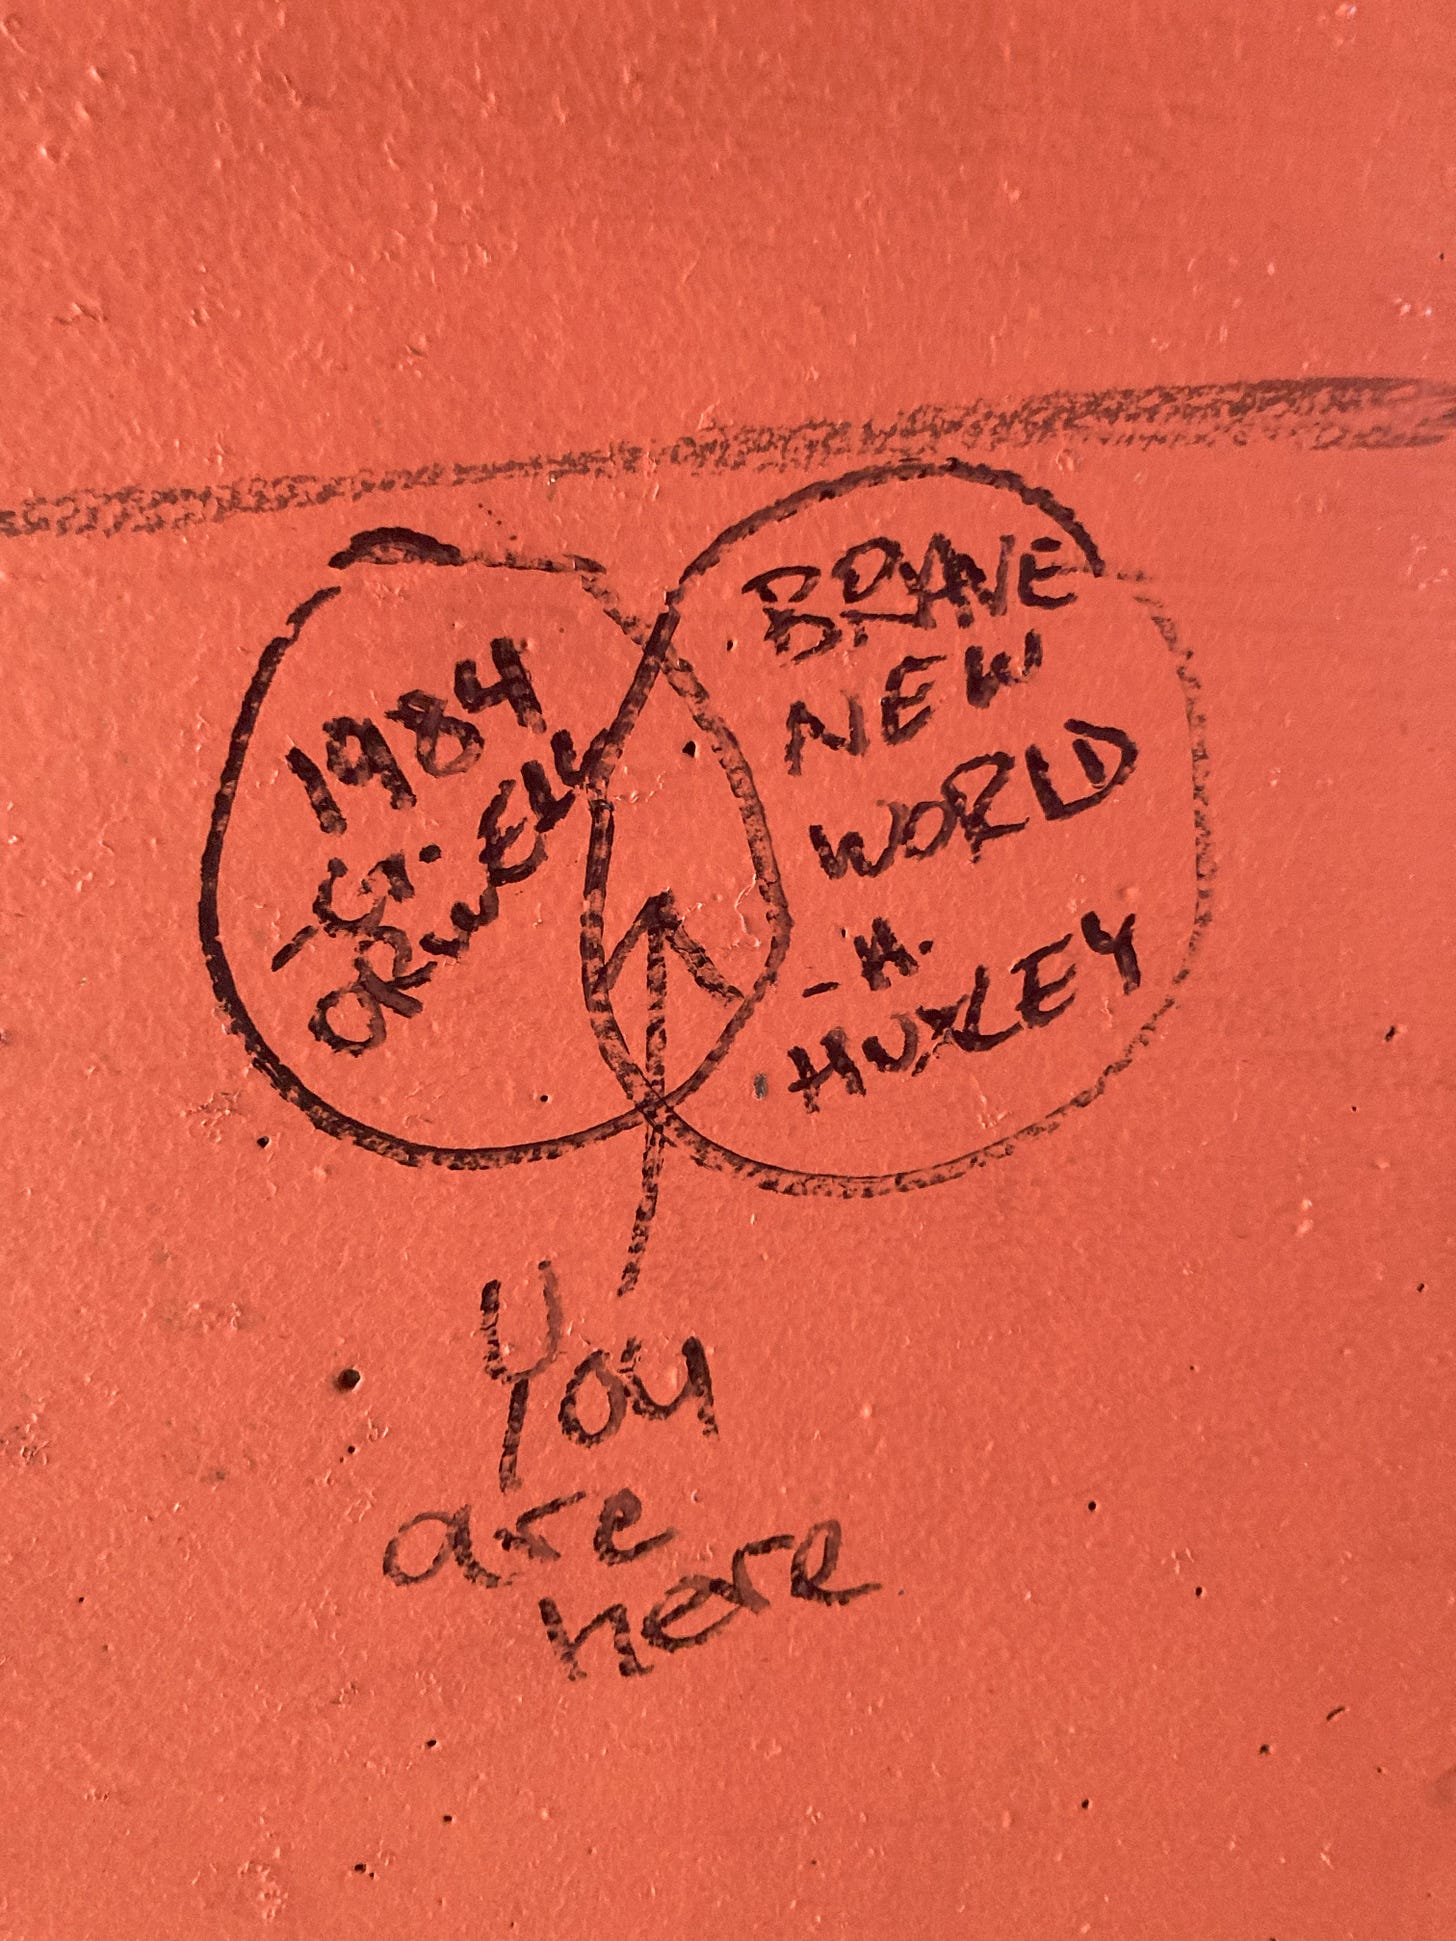 1984
-G.
ORWELL
BRAVE
NEW
WORLD
-A.
HUXLEY
You
are
here